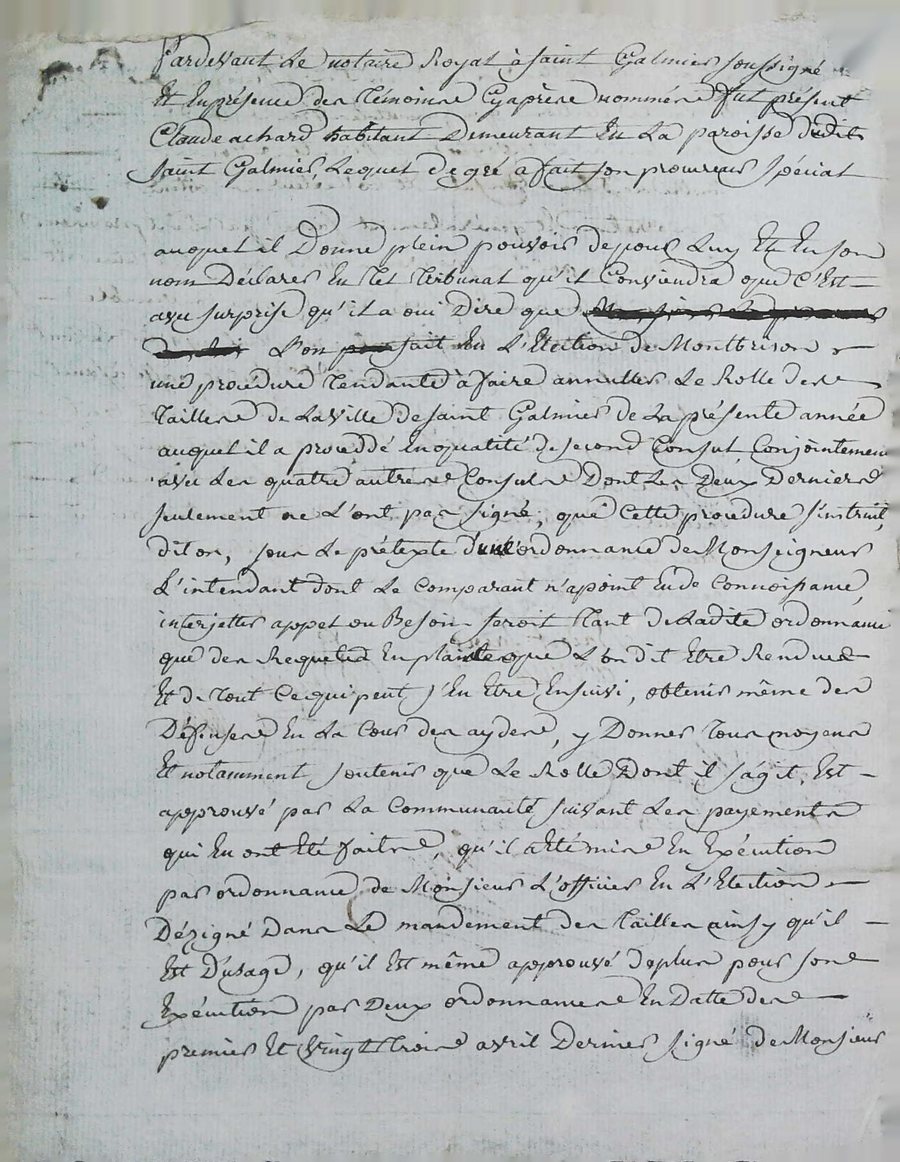 Pardevant Le notaire Royal à saint Galmier soussigné
Et En présence des témoins Cyaprès nommés fut présent
Claude achard habitant Demeurant En La paroisse dudit
saint Galmier, Lequel de gré a fait son procureur spécial
auquel il Donne plein pouvoir de pour Luy Et En son
nom Déclarer En tel tribunal qu'il Conviendra que C'Est
avec surprise qu'il a oui Dire que
L'on fait En L'Election de Montbrison
une procédure tendante à faire annuller Le Rolle des
tailles de La ville de saint Galmier de La présente année
auquel il a procédé En qualité de second Consul Conjointement
avec Les quatre autres Consuls Dont Les Deux Derniers
seulement ne L'ont pas signé, que Cette procédure s'intruit
dit on, sous Le prétexte d'une ordonnance de Monseigneur
L'intendant dont Le Comparant n'a point Eu de Connoissance,
interjetter appel ou Besoin seroit tant de Ladite ordonnance
que des Requetes En plainte que L'on dit Etre Rendues
Et de tout Ce qui peut s'En Etre Ensuivi, obtenir même des
Défenses En La Cour des aydes, y Donner tous moyens
Et notamment soutenir que Le Rolle Dont il s'agit, Est
approuvé par La Communauté suivant Les payements
qui En ont Eté faits, qu'il a Eté mis En Exécution
par ordonnance de Monsieur L'officier En L'Election
Dézigné Dans Le mandement des tailles ainsy qu'il
Est D'usage, qu'il Est même approuvé de plus pour son
Exécution par Deux ordonnances En Datte des
premier Et vingt trois avril Dernier signé de Monsieur